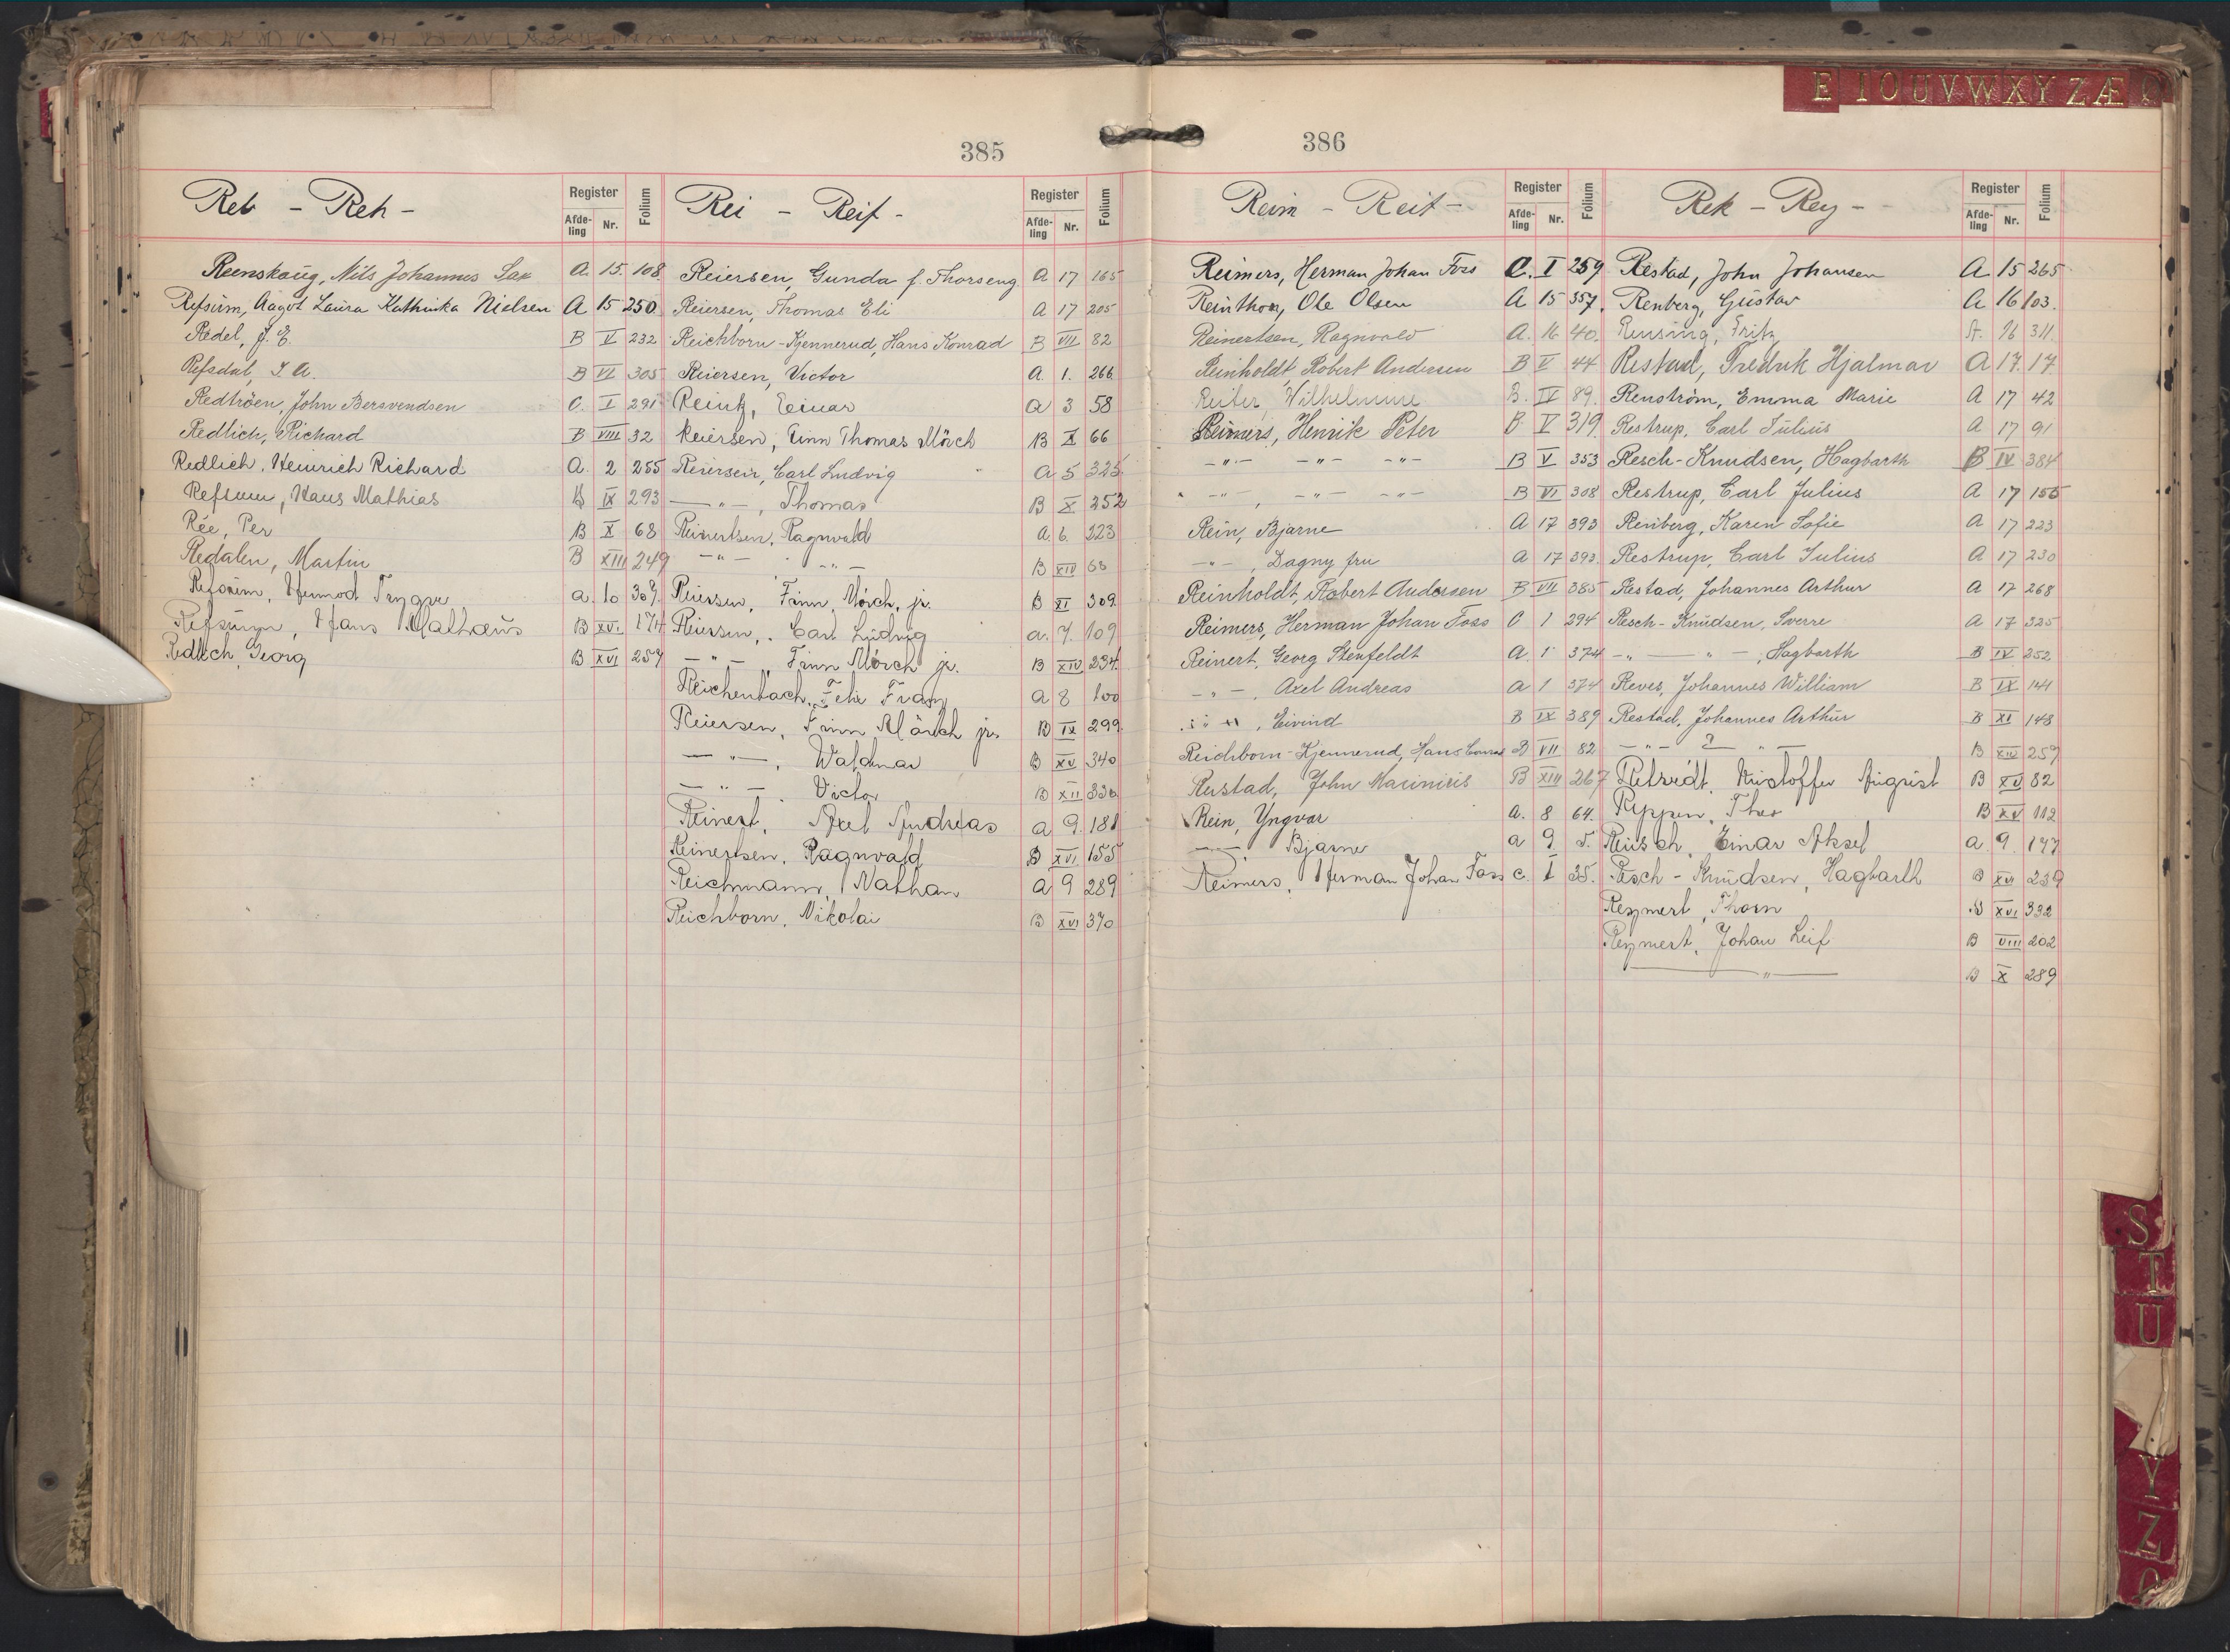 E I O U V W X Y Z Æ
385
Reb - Reh -
Register
Afde-ling Nr. Folium
Reenskaug, Nils Johannes Sax A. 15. 108
Refsum, Aagot Laura Kathinka Nielsen A 15 250
Redel, J. E. B V 232
Refsdal, I. A. B VI 305
Redtröen, John Bersvendsen C. I 291
Redlich, Richard B VIII 32
Redlich, Heinrich Richard A. 2 255
Refsum, Hans Mathias B IX 293
Rée, Per B X 68
Redalen, Martin B XIII 249
Refsum, Hermod Trygve a. 10 309
Refsum, Hans Mathæus B XVI 174
Redlich, Georg B XVI 257
Rei - Reif -
Register
Afde-ling Nr. Folium
Reiersen, Gunda f. Thorseng A 17 165
Reiersen, Thomas Eli A 17 205
Reichborn-Kjennerud, Hans Konrad B VII 82
Reiersen, Victor A. 1. 266
Reintz, Einar a 3 58
Reiersen, Finn Thomas Mörch B X 66
Reiersen, Carl Ludvig a 5 325
— " —, Thomas B X 252
Reinertsen, Ragnvald a. 6. 223
— " — — " — B XIV 68
Reiersen, Finn Mörch, jr. B XI 309
Reiersen, Carl Ludvig a. 7. 109
— " — Finn Mörch jr. B XIV 234
Reichenbach, Felix Franz a 8 100
Reiersen, Finn Mörch jr. B IX 299
— " —, Waldmar B XV 340
— " —, Victor B XII 330
Reinert, Axel Andreas a 9. 181
Reinertsen, Ragnvald B XVI 155
Reichmann, Nathan a 9 289
Reichborn, Nikolai B XVI 370
386
Reim - Reit -
Register
Afde-ling Nr. Folium
Reimers, Herman Johan Foss C. I 259
Reinthon, Ole Olsen A 15 357.
Reinertsen, Ragnvald A. 16 40.
Reinholdt, Robert Andersen B V 44
Reiter, Wilhelmine B. IV 89.
Reimers, Henrik Peter B V 319
— " — — " — — " — B V 353
— " —, — " — — " — B VI 308
Rein, Bjarne A 17 393
— " —, Dagny fru A 17 393.
Reinholdt, Robert Anderssen B VII 385
Reimers, Herman Johan Foss C 1 294
Reinert, Georg Stenfeldt A. 1 374
— " —, Axel Andreas A 1 374
— " —, Eivind B IX 389
Reichborn-Kjennerud, Hans Conrad B VII 82
Reistad, John Mariniris B XIII 267
Rein, Yngvar a. 8 64.
— " — Bjarne a 9. 5.
Reimers, Herman Johan Foss c. I 35.
Rek - Rey -
Register
Afde-ling Nr. Folium
Restad, John Johansen A 15 265
Renberg, Gustav A 16 103.
Rensing, Fritz A. 16 311.
Restad, Fredrik Hjalmar A 17. 17
Renström, Emma Marie A 17 42
Restrup, Carl Julius A 17 91
Resch-Knudsen, Hagbarth B IV 384
Restrup, Carl Julius A 17 155
Renberg, Karen Sofie A 17 223
Restrup, Carl Julius A 17 230
Restad, Johannes Arthur A 17 268
Resch-Knudsen, Sverre A 17 325
— " — " —, Hagbarth B IX 252
Reves, Johannes William B IX 141
Restad, Johannes Arthur B XI 148
— " — — " — B XIV 259
Kristoffer August B XV 82
Reppen, Theo B XV 112
Reusch, Einar Aksel a. 9. 177
Resch-Knudsen, Hagbarth B XVI 239
Reymert, Thorn B XVI 332
Reymert, Johan Leif B VIII 202
— " — B X 289
S
T
U
Y
Z